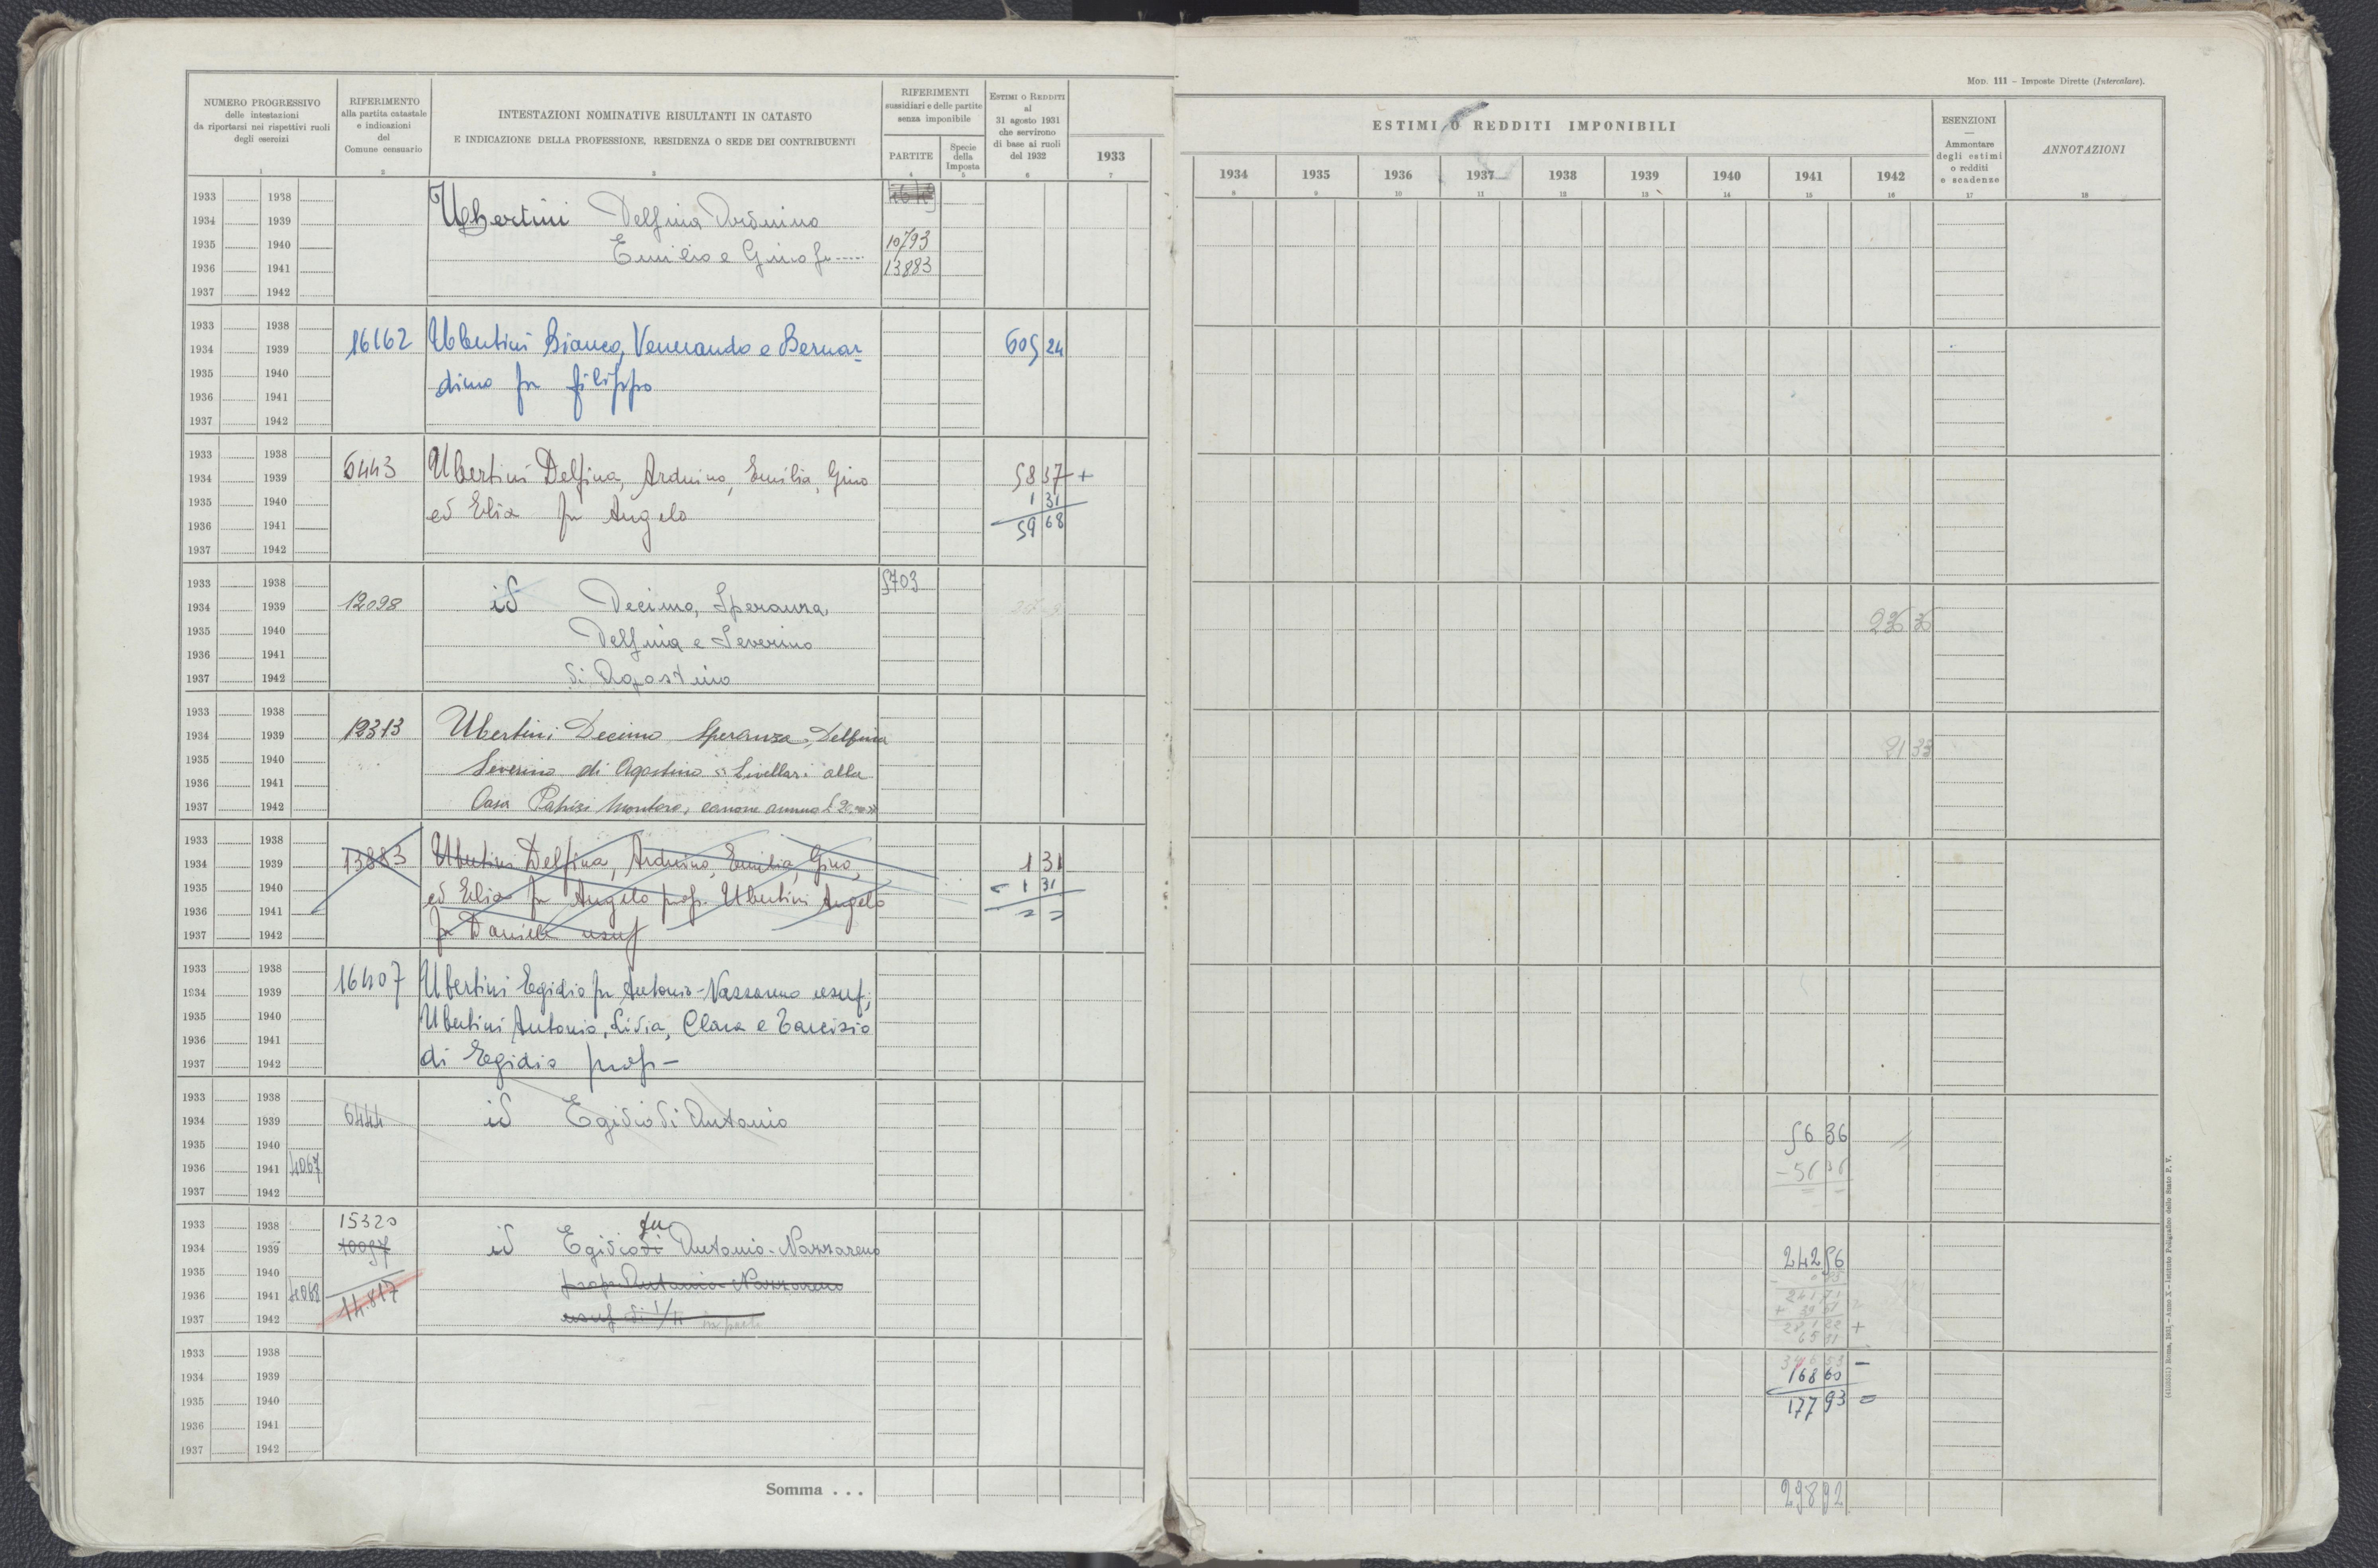 Mod. 111 – Imposte Dirette (Intercalare).
NUMERO PROGRESSIVO
delle intestazioni
da riportarsi nei rispettivi ruoli
degli esercizi
RIFERIMENTO
alla partita catastale
e indicazioni
del
Comune censuario
INTESTAZIONI NOMINATIVE RISULTANTI IN CATASTO
E INDICAZIONE DELLA PROFESSIONE, RESIDENZA O SEDE DEI CONTRIBUENTI
RIFERIMENTI
sussidiari e delle partite
senza imponibile
PARTITE
Specie
della
Imposta
ESTIMI O REDDITI
al
31 agosto 1931
che servirono
di base ai ruoli
del 1932
ESTIMI O REDDITI IMPONIBILI
1933 1934 1935 1936 1937 1938 1939 1940 1941 1942
ESENZIONI
—
Ammontare
degli estimi
o redditi
e scadenze
ANNOTAZIONI
1 2 3 4 5 6 7 8 9 10 11 12 13 14 15 16 17 18
1933 1938
1934 1939 Ubertini Delfina Arduino
1935 1940 Emilio e Gino fu 10793
1936 1941 13883
1937 1942
1933 1938
1934 1939 16162 Ubertini Bianco, Venerando e Bernar- 605 24
1935 1940 dino fu filippo
1936 1941
1937 1942
1933 1938
1934 1939 6443 Ubertini Delfina, Arduino, Emilia, Gino 58 37 +
1935 1940 ed Elia fu Angelo 1 31
1936 1941 59 68
1937 1942
1933 1938 5703
1934 1939 12098 id Decimo, Speranza,
1935 1940 Delfina e Severino
1936 1941
1937 1942 di Agostino
1933 1938
1934 1939 12313 Ubertini Decimo Speranza, Delfina 21 33
1935 1940 Severino di Agostino
1936 1941 Livellari alla
1937 1942 Casa Patrizi Montoro, canone annuo
1933 1938
1934 1939 13883 Ubertini Delfina, Arduino, Emilia, Gino, 1 31
1935 1940 ed Elia fu Angelo prop. Ubertini Angelo - 1 31
1936 1941 = =
1937 1942 fu Daniele usuf
1933 1938
1934 1939 16407 Ubertini Egidio fu Antonio-Nazzareno usuf;
1935 1940 Ubertini Antonio, Lidia, Clara e Tarcisio
1936 1941
1937 1942 di Egidio prop-
1933 1938
1934 1939 6444 id Egidio di Antonio 56 36
1935 1940 - 56 36
1936 1941 4067 = =
1937 1942
1933 1938 15320 fu
1934 1939 10097 id Egidio di Antonio-Nazzareno 242 56
1935 1940 prop. Antonio-Nazzareno
1936 1941 4068 14.817
1937 1942 usuf di 1/4
1933 1938
1934 1939 168 60
1935 1940 177 93 =
1936 1941
1937 1942
Somma . . . 298 92
(4103051) Roma, 1931 - Anno X - Istituto Poligrafico dello Stato P. V.